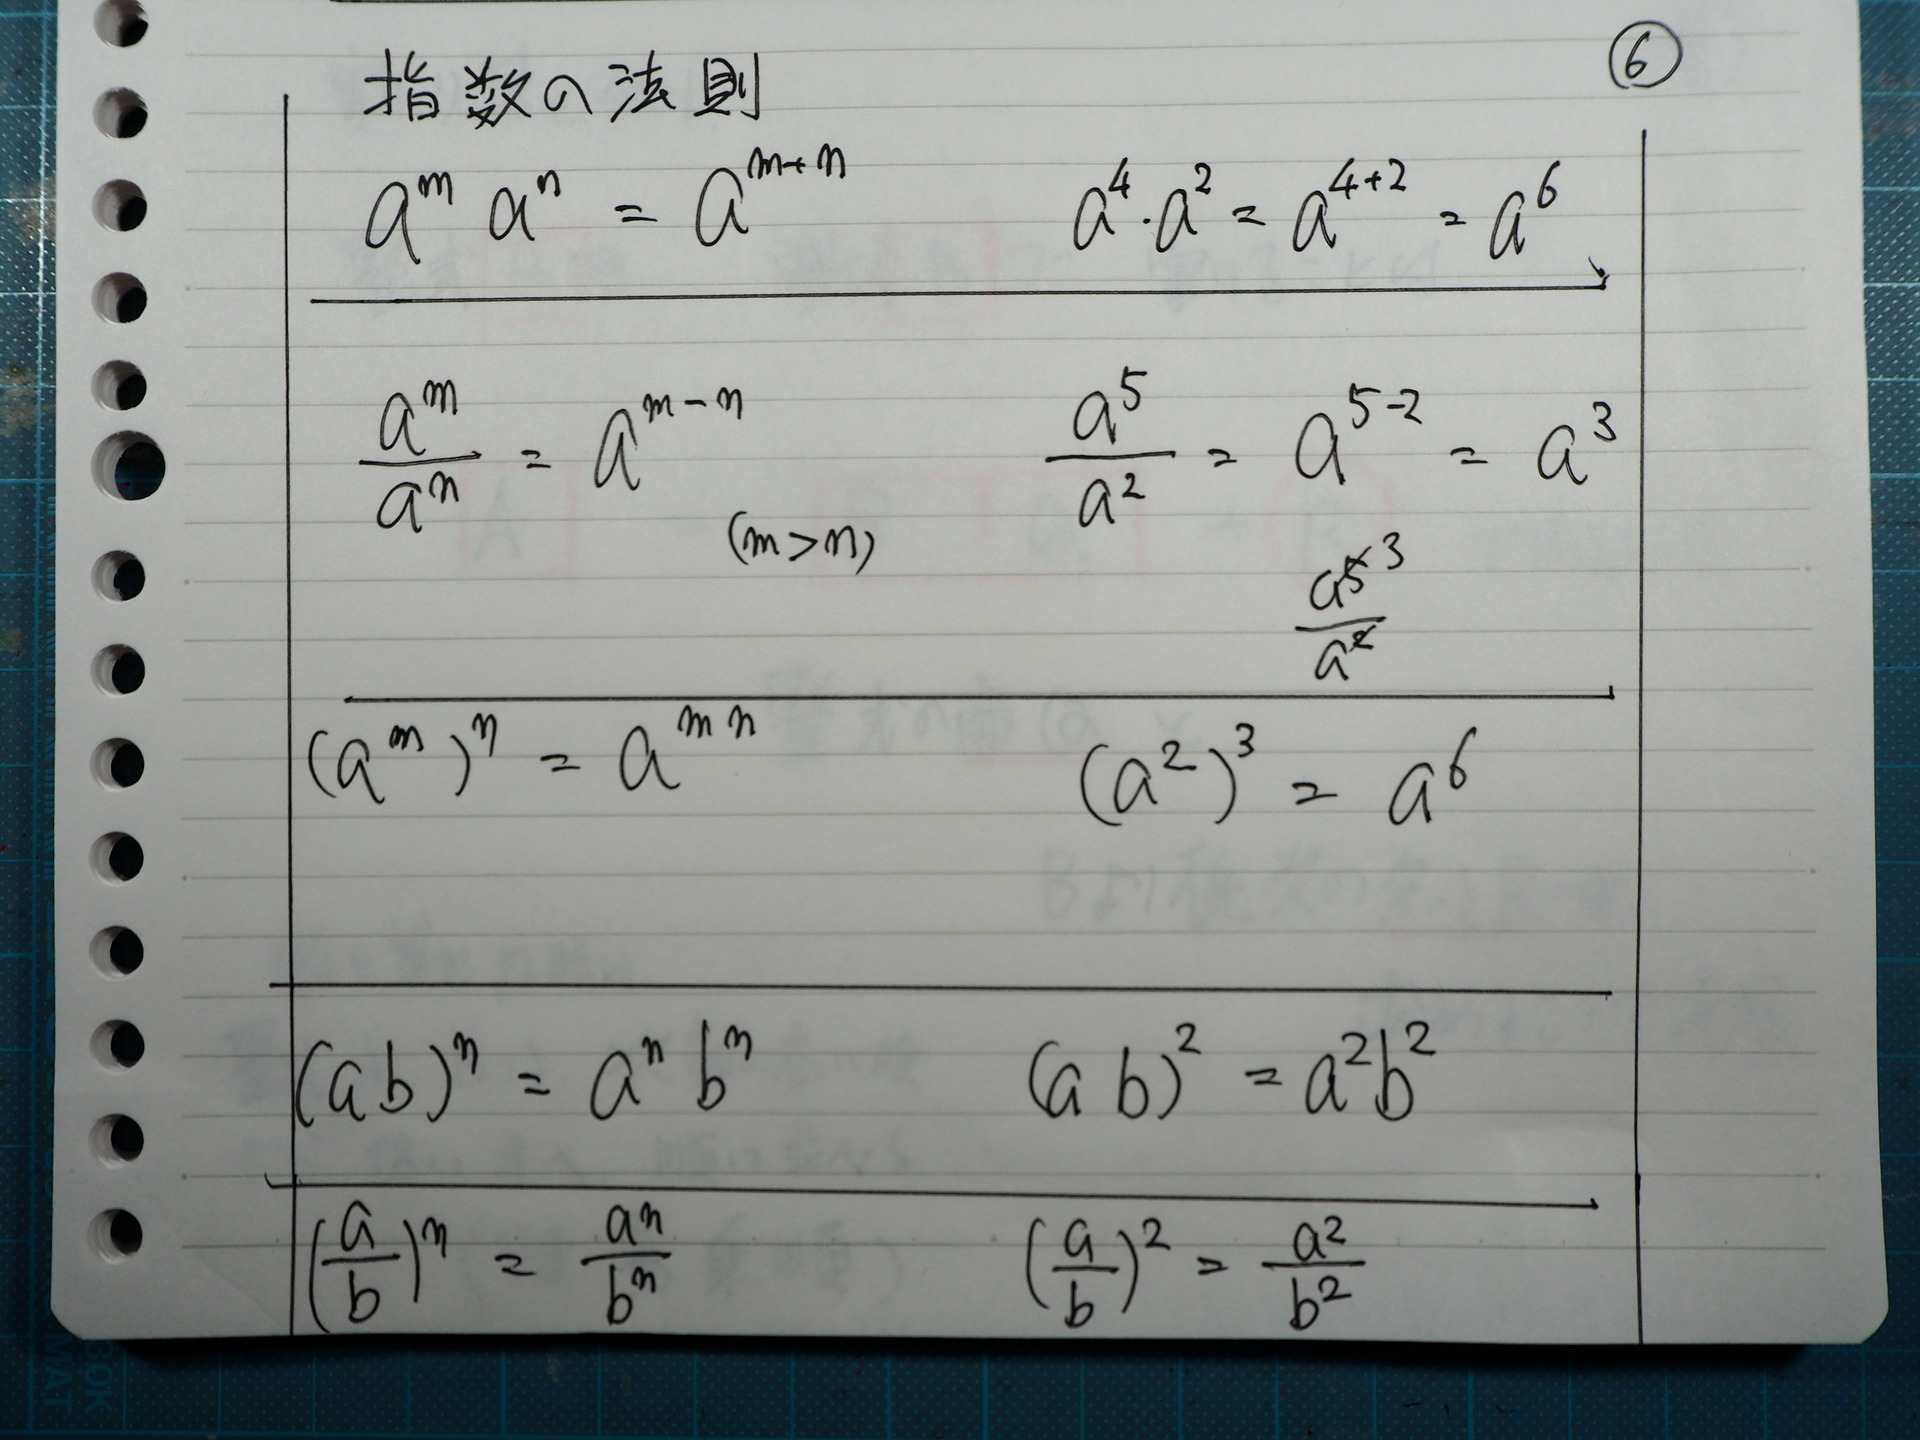 指数の法則 ⑥
a^m a^n = a^{m+n} a^4・a^2 = a^{4+2} = a^6
a^m/a^n = a^{m-n} a^5/a^2 = a^{5-2} = a^3
(m>n)
a^5 3/a^2
(a^m)^n = a^{mn} (a^2)^3 = a^6
(ab)^n = a^n b^n (ab)^2 = a^2b^2
(a/b)^n = a^n/b^n (a/b)^2 = a^2/b^2